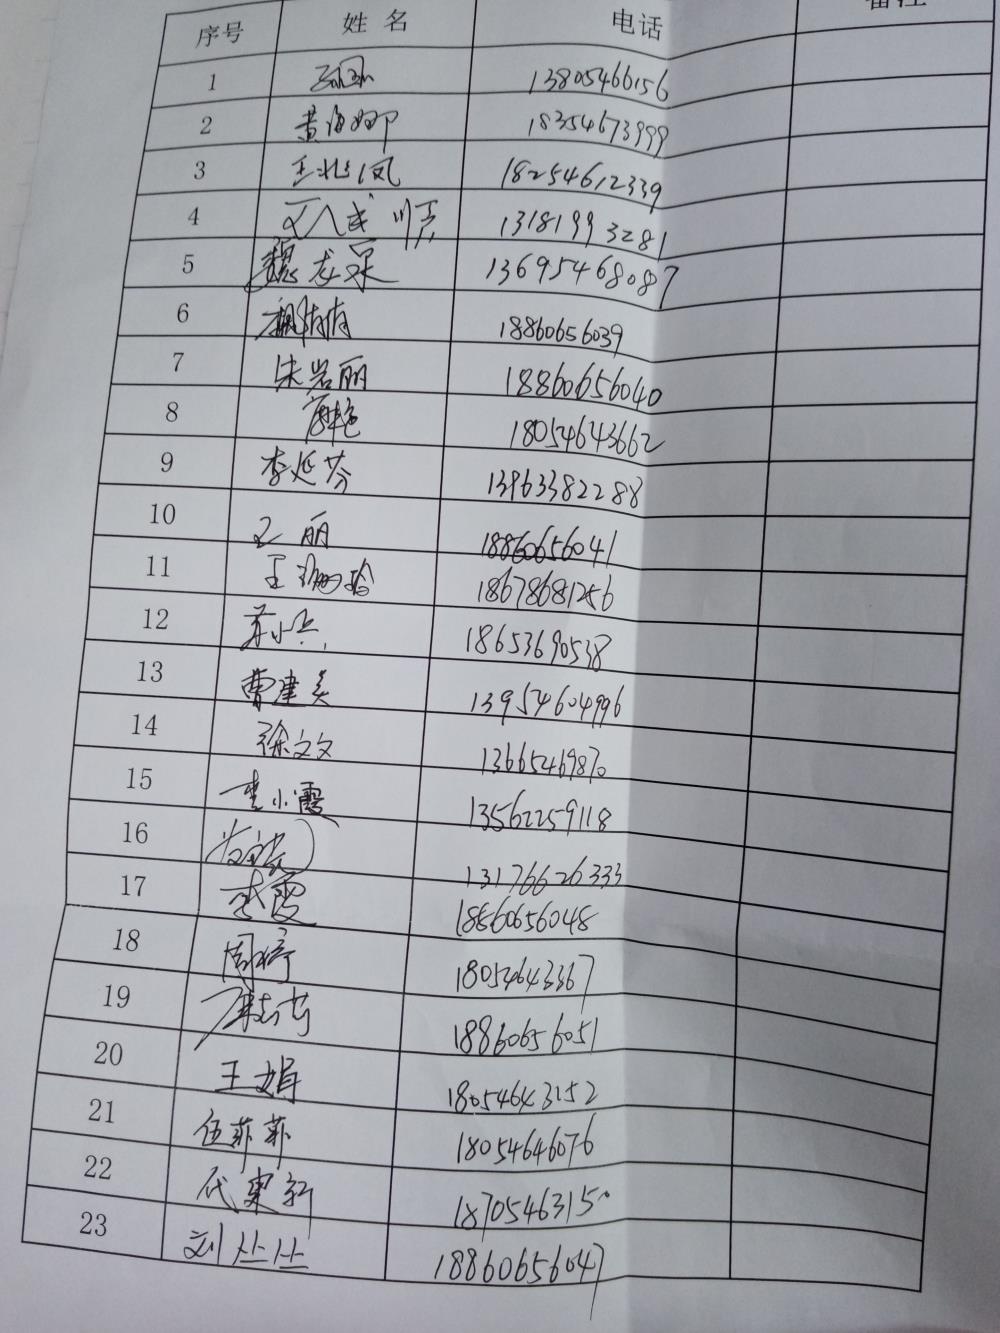 序号 姓名 电话 备注
1 13805466156
2 黄海娜 18354673999
3 王兆凤 18254612339
4 13181993281
5 魏龙泉 13695468087
6 18860656039
7 朱岩丽 18860656040
8 18054643662
9 李延芬 13963382288
10 王丽 18860656041
11 王珊玲 18678681256
12 18653690538
13 曹建美 13954604996
14 徐文文 13665469870
15 李小霞 13562259118
16 13176626333
17 李霞 18860656048
18 周婷 18054643367
19 18860656051
20 王娟 18054643152
21 伍菲菲 18054646076
22 代更新 18705463150
23 刘丛丛 18860656047